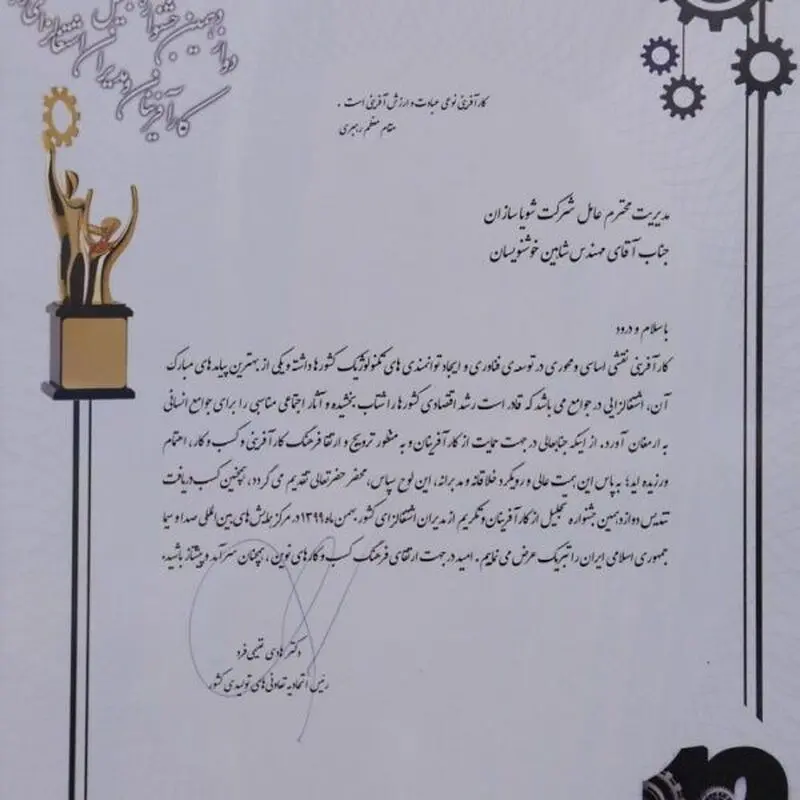 دوازدهمین جشنواره
کارآفرینان و مدیران اشتغالزای
کارآفرینی نوعی عبادت و ارزش آفرینی است .
مقام معظم رهبری
مدیریت محترم عامل شرکت شویا سازان
جناب آقای مهندس شاهین خوشنویسان
با سلام و درود
کارآفرینی نقشی اساسی و محوری در توسعه ی فناوری و ایجاد توانمندی های تکنولوژیک کشورها داشته و یکی از بهترین پیامدهای مبارک
آن، اشتغالزایی در جوامع می باشد که قادر است رشد اقتصادی کشورها را شتاب بخشیده و آثار اجتماعی مناسبی را برای جوامع انسانی
به ارمغان آورد. از اینکه جنابعالی در جهت حمایت از کارآفرینان و به منظور ترویج و ارتقا فرهنگ کارآفرینی و کسب و کار، اهتمام
ورزیده اید؛ به پاس این همت عالی و رویکرد خلاقانه و مدبرانه، این لوح سپاس، محضر حضرتعالی تقدیم می گردد، همچنین کسب دریافت
تندیس دوازدهمین جشنواره تجلیل از کارآفرینان و تکریم از مدیران اشتغالزای کشور بهمن ماه ۱۳۹۹ در مرکز همایش های بین المللی صدا و سیما
جمهوری اسلامی ایران را تبریک عرض می نمایم. امید در جهت ارتقای فرهنگ کسب و کارهای نوین، همچنان سرآمد و پیشتاز باشید.
دکتر هادی تقی‌فرد
رئیس اتحادیه تعاونی های تولیدی کشور
12